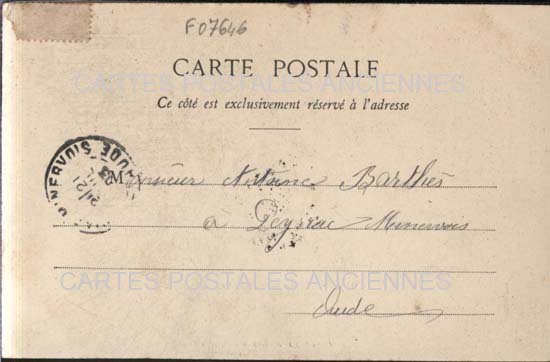 F07646
CARTE POSTALE
CARTES POSTALES ANCIENNES
Ce côté est exclusivement réservé à l'adresse
MINERVOIS AUDE
Monsieur Antoine Barthès
à Peyriac Minervois
CARTES POSTALES ANCIENNES
Aude